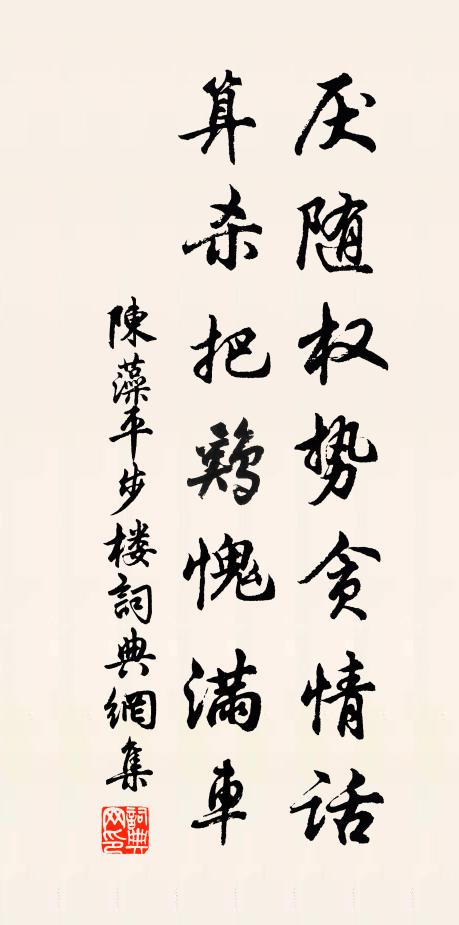 厌随权势贪情话
算杀把鸡愧满車
陳藻平步樓詞典網集
詞典网印